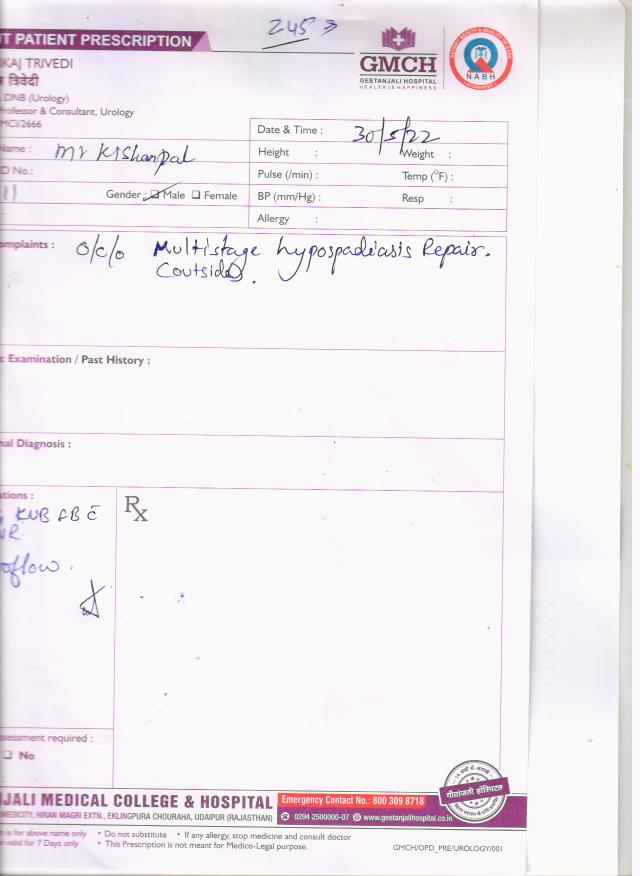 245
T PATIENT PRESCRIPTION
GMCH
GEETANJALI HOSPITAL
HEALTH IS HAPPINESS
NABH
KAJ TRIVEDI
त्रिवेदी
, DNB (Urology)
rofessor & Consultant, Urology
MCI/2666
Date & Time : 30/5/22
Name : Mr Kishanpal
Height : Weight :
D No.:
Pulse (/min) : Temp (°F) :
Gender : Male Female
BP (mm/Hg) : Resp :
Allergy :
omplaints : O/c/o Multistage hypospadiasis Repair.
Coutside.
c Examination / Past History :
nal Diagnosis :
ations :
Rx
KUB
oflow.
sessment required :
No
JALI MEDICAL COLLEGE & HOSPITAL
Emergency Contact No.: 800 309 8718
MEDICITY, HIRAN MAGRI EXTN., EKLINGPURA CHOURAHA, UDAIPUR (RAJASTHAN)
0294 2500000-07 www.geetanjalihospital.co.in
गीतांजली हॉस्पिटल
n is for above name only • Do not substitute • If any allergy, stop medicine and consult doctor
valid for 7 Days only • This Prescription is not meant for Medico-Legal purpose.
GMCH/OPD_PRE/UROLOGY/001